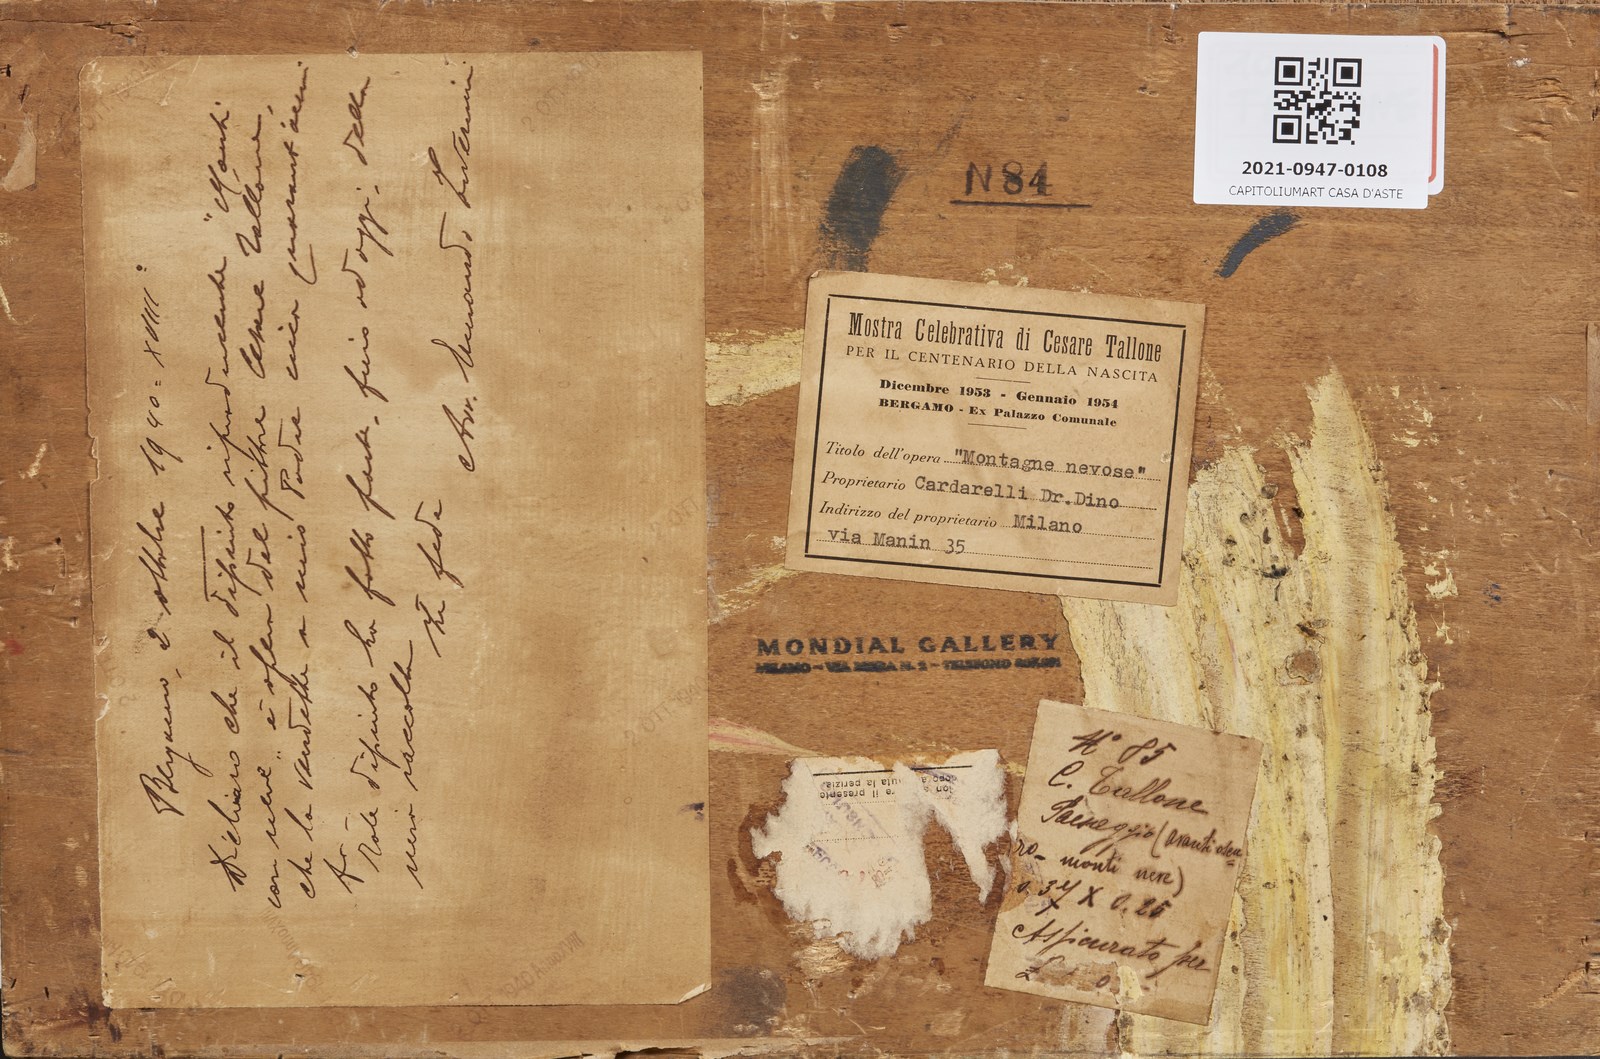 Bergamo, 2 ottobre 1940 = XVIII°
Dichiaro che il dipinto riproducente "Monti
con neve" è opera del pittore Cesare Tallone,
che lo vendette a mio Padre circa quarant'anni
fa.
Tale dipinto ha fatto parte, fino ad oggi, della
mia raccolta
In fede
Avv.
N 84
2021-0947-0108
CAPITOLIUMART CASA D'ASTE
Mostra Celebrativa di Cesare Tallone
PER IL CENTENARIO DELLA NASCITA
Dicembre 1953 - Gennaio 1954
BERGAMO - Ex Palazzo Comunale
Titolo dell'opera "Montagne nevose"
Proprietario Cardarelli Dr.Dino
Indirizzo del proprietario Milano
via Manin 35
MONDIAL GALLERY
MILANO - VIA N. 2 - TELEFONO
re il presente
uta la perizia
N° 85
C. Tallone
Paesaggio (avanti
monti nere)
X 0.25
Assicurato per
£